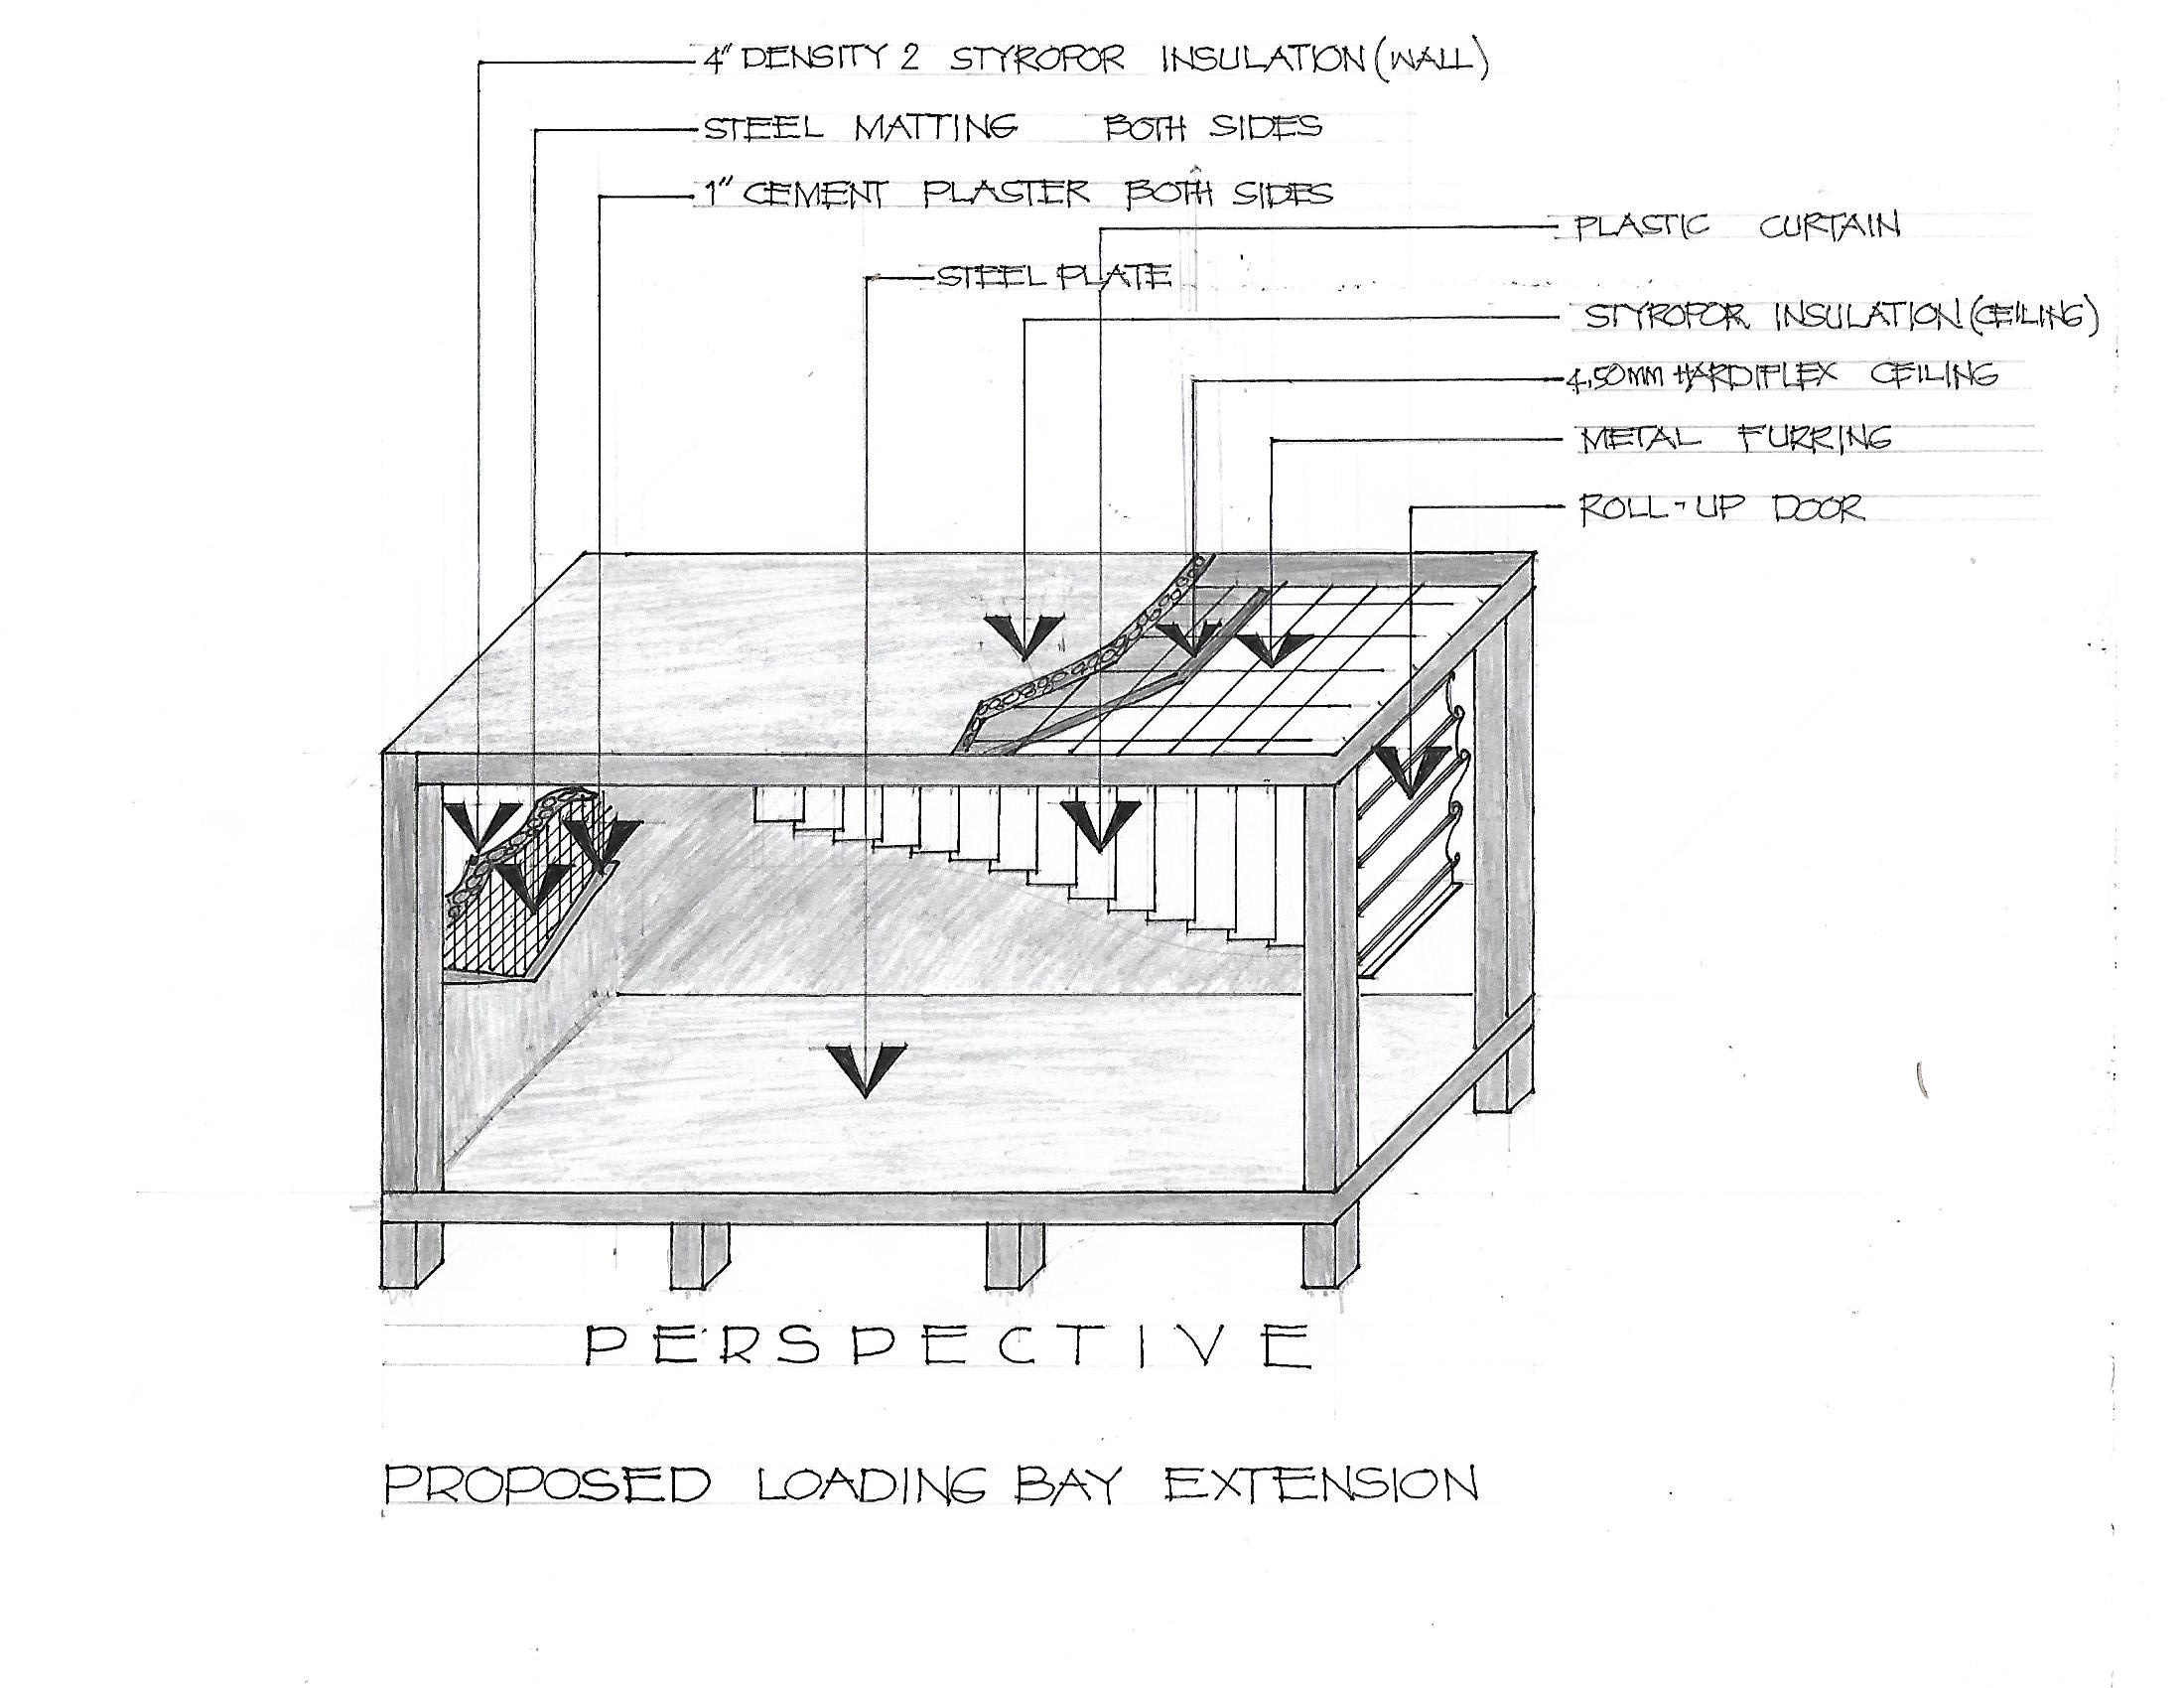 4" DENSITY 2 STYROPOR INSULATION (WALL)
STEEL MATTING BOTH SIDES
1" CEMENT PLASTER BOTH SIDES
PLASTIC CURTAIN
STEEL PLATE
STYROPOR INSULATION (CEILING)
4.50mm HARDIFLEX CEILING
METAL FURRING
ROLL-UP DOOR
PERSPECTIVE
PROPOSED LOADING BAY EXTENSION